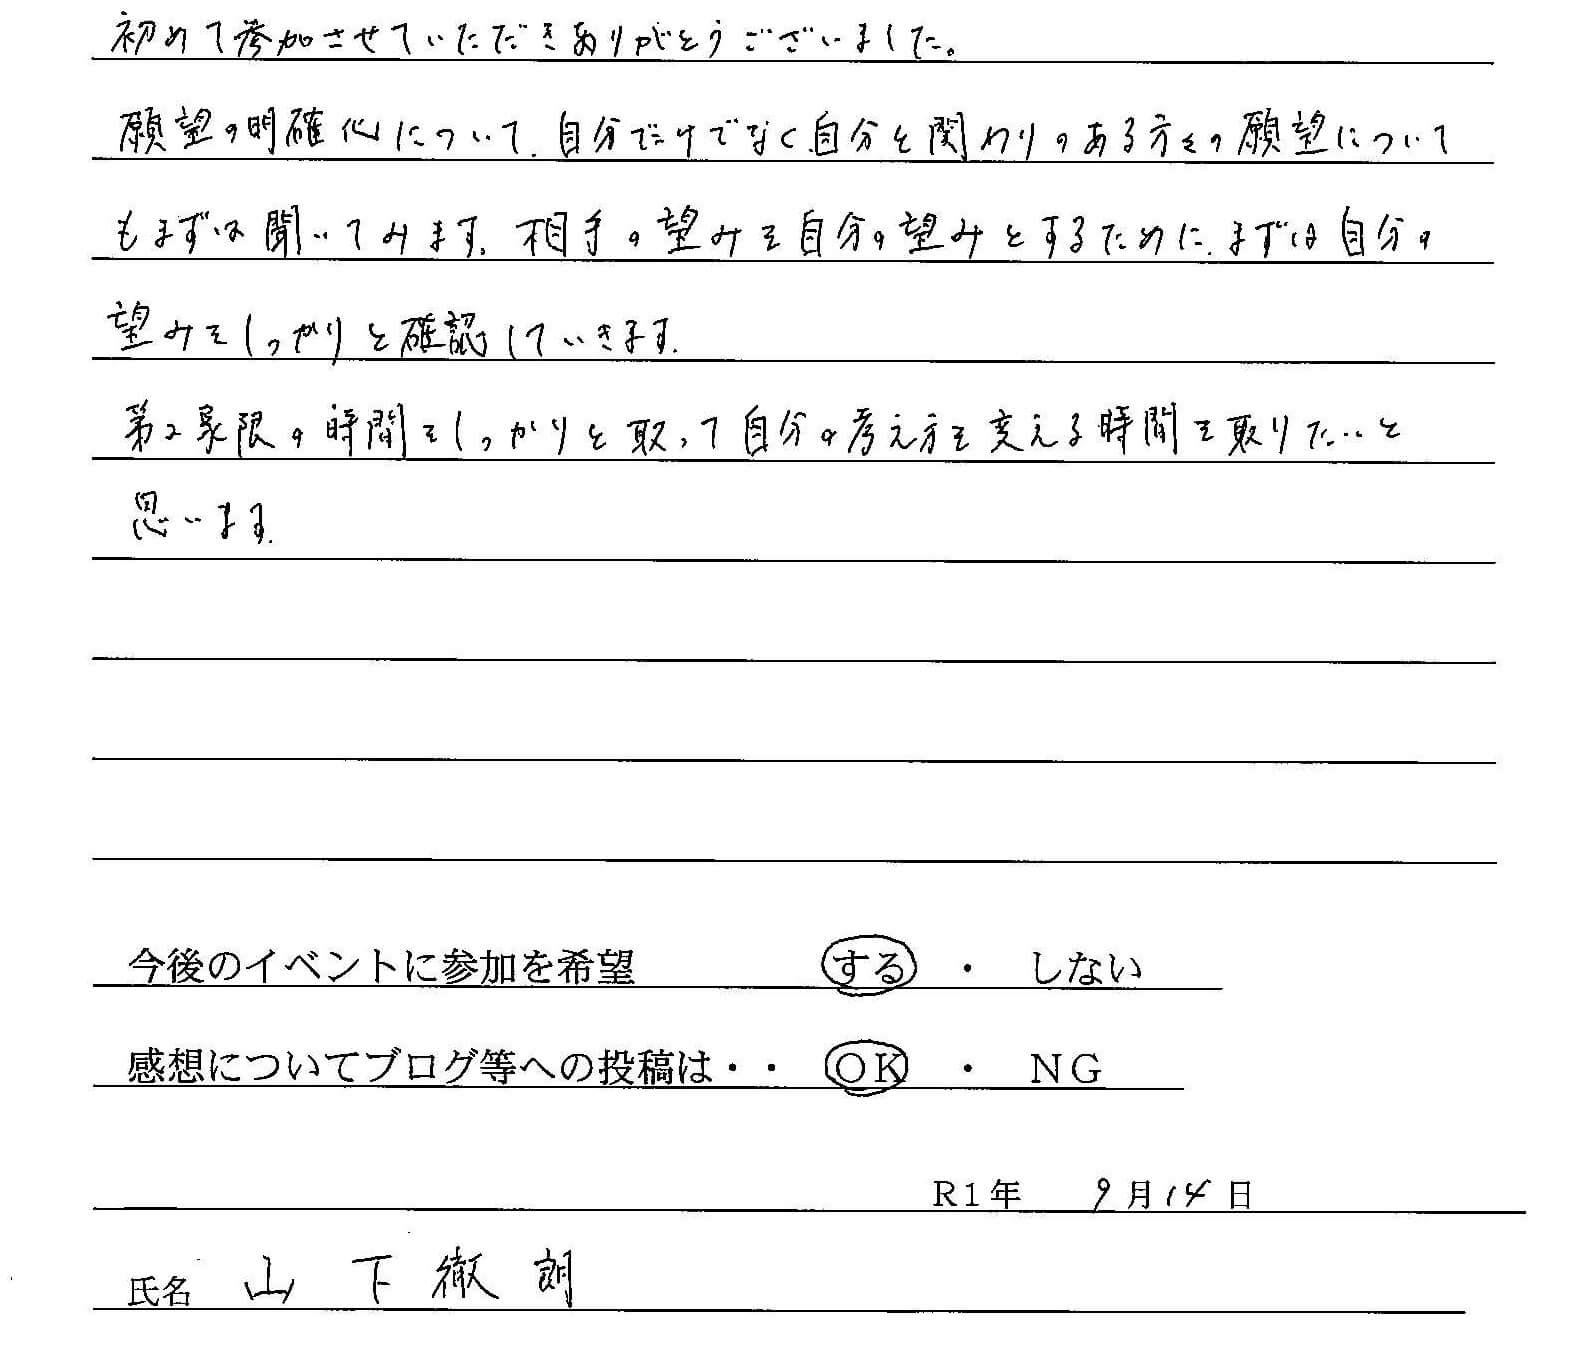 初めて参加させていただきありがとうございました。
願望の明確化について、自分だけでなく自分と関わりのある方々の願望について
もまずは聞いてみます。相手の望みを自分の望みとするために、まずは自分の
望みをしっかりと確認していきます。
第2象限の時間をしっかりと取って自分の考え方を変える時間を取りたいと
思います。
今後のイベントに参加を希望 する ・ しない
感想についてブログ等への投稿は・・ OK ・ NG
R1年 9月14日
氏名 山下徹朗